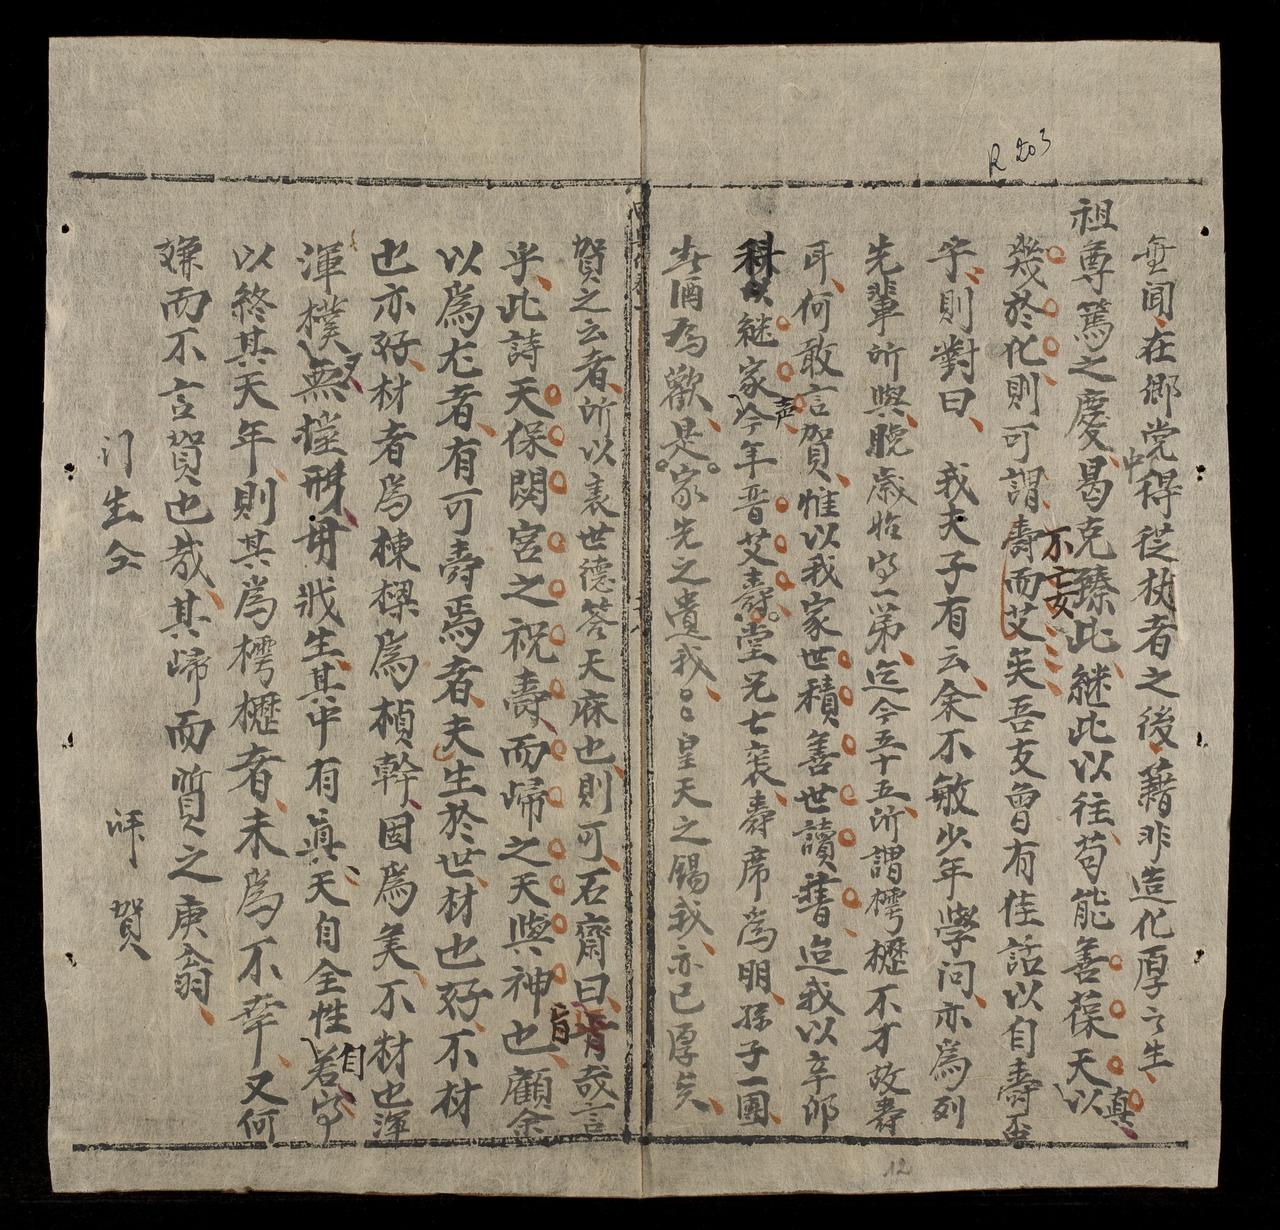 R 203
無闻在鄉党中得從杖者之後籍非造化厚之生
祖尊篤之慶曷克臻此継此以往苟能善葆天真以
幾於化則可謂壽而不妄艾矣吾友曾有佳話以自壽否
乎則對曰我夫子有云余不敏少年學问亦為列
先軰所與晚歳怡一第迄今五十五所謂樗櫪不才故壽
耳何敢言賀惟以我家世積善世讀書迨我以辛卯
科以継家声今年晋艾壽堂兄七裘壽席為明孫子一團
酒為歡是家先之遺我皇天之錫我亦已厚矣
賀之云者所以表世德答天庥也則可石齋曰旨哉言
乎此詩天保閟宮之祝壽而歸之天與神也顧余
以為尨者有可壽焉者夫生於世材也好不材
也亦好材者為棟樑為楨幹固為美不材也渾
渾樸無文形戕生其中有眞天自全性自若
以終其天年則其為樗櫪者未為不幸又何
嫌而不言賀也哉其歸而質之庚翁
门生仝
拜賀
12